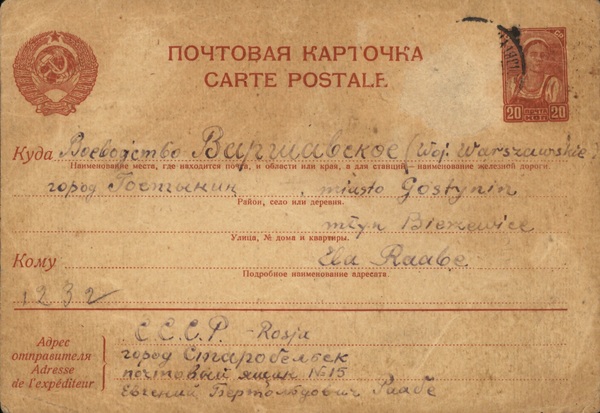 ПОЧТОВАЯ КАРТОЧКА
CARTE POSTALE
20 20
Куда Воеводство Варшавское (Woj. Warszawskie)
Наименование места, где находится почта, и области или края, а для станций — наименование железной дороги.
город Гостынин miasto Gostynin
Район, село или деревня.
młyn Bierzewice
Улица, № дома и квартиры.
Кому Ela Raabe
Подробное наименование адресата
1232
Адрес отправителя
Adresse de l'expéditeur
С.С.С.Р. - Rosja
город Старобельск
почтовый ящик №15
Евгений Бертольдович Раабе